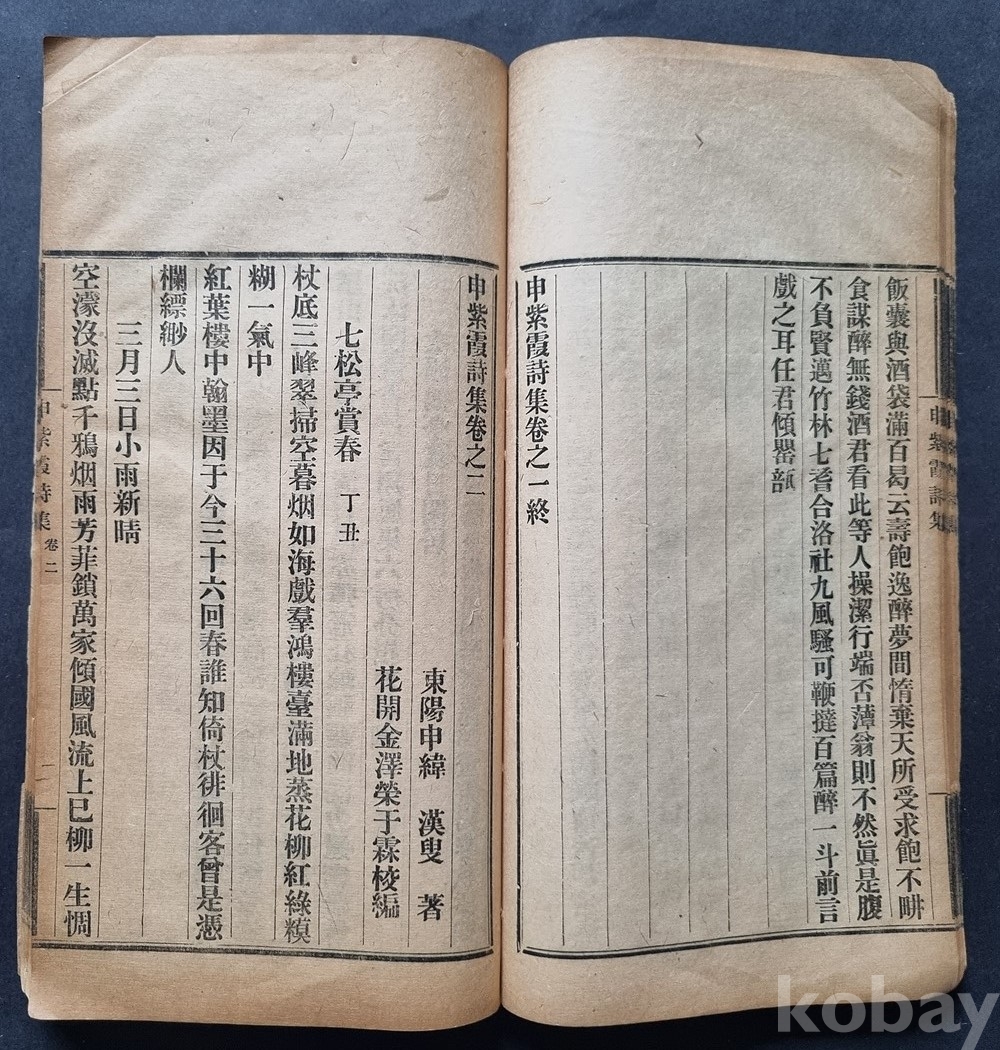 飯囊與酒袋滿百曷云壽飽逸醉夢間惰棄天所受求飽不畊
食謀醉無錢酒君看此等人操潔行端否蓱翁則不然眞是腹
不負賢邁竹林七耆合洛社九風騷可鞭撻百篇醉一斗前言
戲之耳任君傾罌瓿
申紫霞詩集卷之一終
申紫霞詩集卷之二
東陽申緯 漢叟 著
花開金澤榮于霖校編
七松亭賞春 丁丑
杖底三峰翠掃空暮烟如海戲羣鴻樓臺滿地蒸花柳紅綠糢
糊一氣中
紅葉樓中翰墨因于今三十六回春誰知倚杖徘徊客曾是憑
欄縹緲人
三月三日小雨新晴
空濛沒滅點千鴉烟雨芳菲鎖萬家傾國風流上巳柳一生惆
申紫霞詩集
申紫霞詩集 卷二 一
kobay